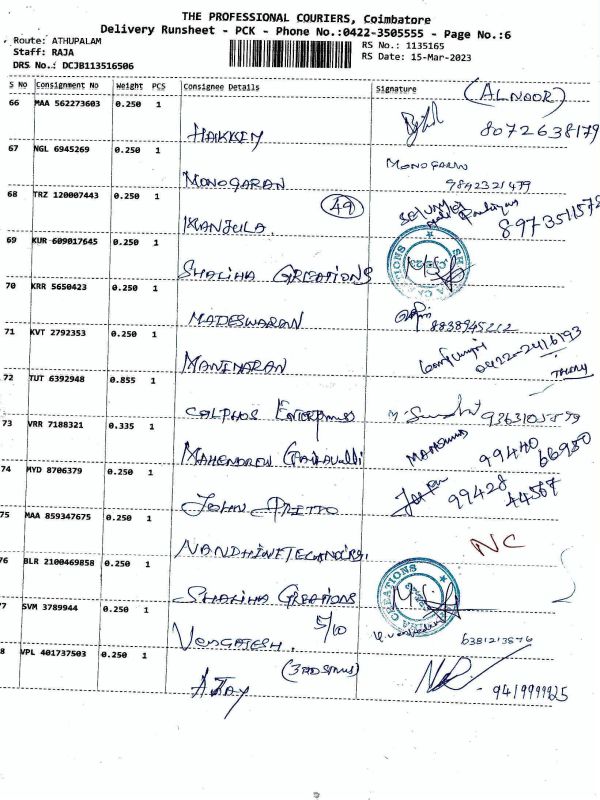 THE PROFESSIONAL COURIERS, Coimbatore
Delivery Runsheet - PCK - Phone No.:0422-3505555 - Page No.:6
Route: ATHUPALAM
Staff: RAJA
DRS No.: DCJB113516506
RS No.: 1135165
RS Date: 15-Mar-2023
S No Consignment No Weight PCS Consignee Details Signature
(ALNOOR)
66 MAA 562273603 0.250 1
HAKKEM 8072638179
67 NGL 6945269 0.250 1
MONOGARAN MONOGARAN
9842321479
68 TRZ 120007443 0.250 1
49
KANJULA 8973511578
69 KUR 609017645 0.250 1
SHALIHA CREATIONS
70 KRR 5650423 0.250 1
MADESWARAN 8838945212
71 KVT 2792353 0.250 1
MANIMARAN 0422-2416193
72 TUT 6392948 0.855 1
CALPHOS ENTERPRISES
73 VRR 7188321 0.335 1
MAHENDREN 99440 66980
74 MYD 8706379 0.250 1
JOHN PRITTO 99428 44567
75 MAA 859347675 0.250 1
NC
76 BLR 2100469858 0.250 1
SHALIHA CREATIONS
77 SVM 3789944 0.250 1
5/10
VENGATESH. 6381213876
8 VPL 401737503 0.250 1
AJAY - 9419999925